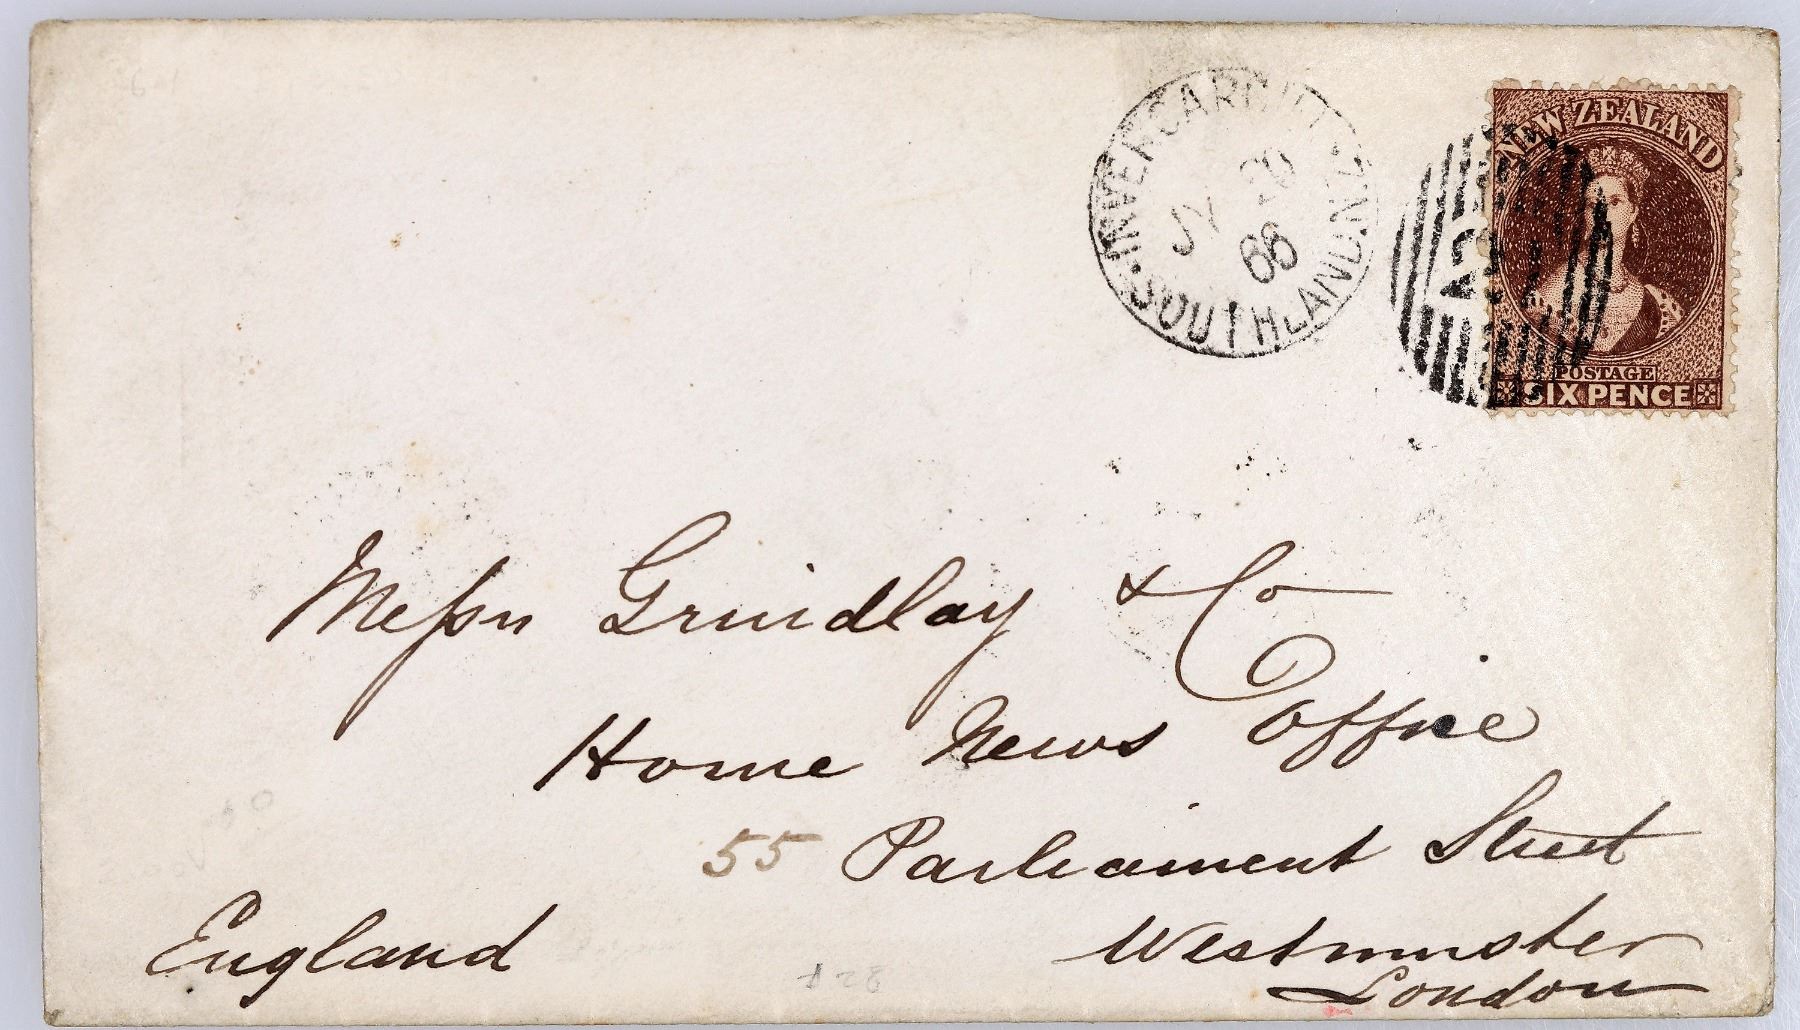 INVERCARGILL
JY 20
66
SOUTHLAND. N.Z
NEW ZEALAND
POSTAGE
SIX PENCE
Messrs Grindlay & Co
Home News Office
55 Parliament Street
Westminster
London
England